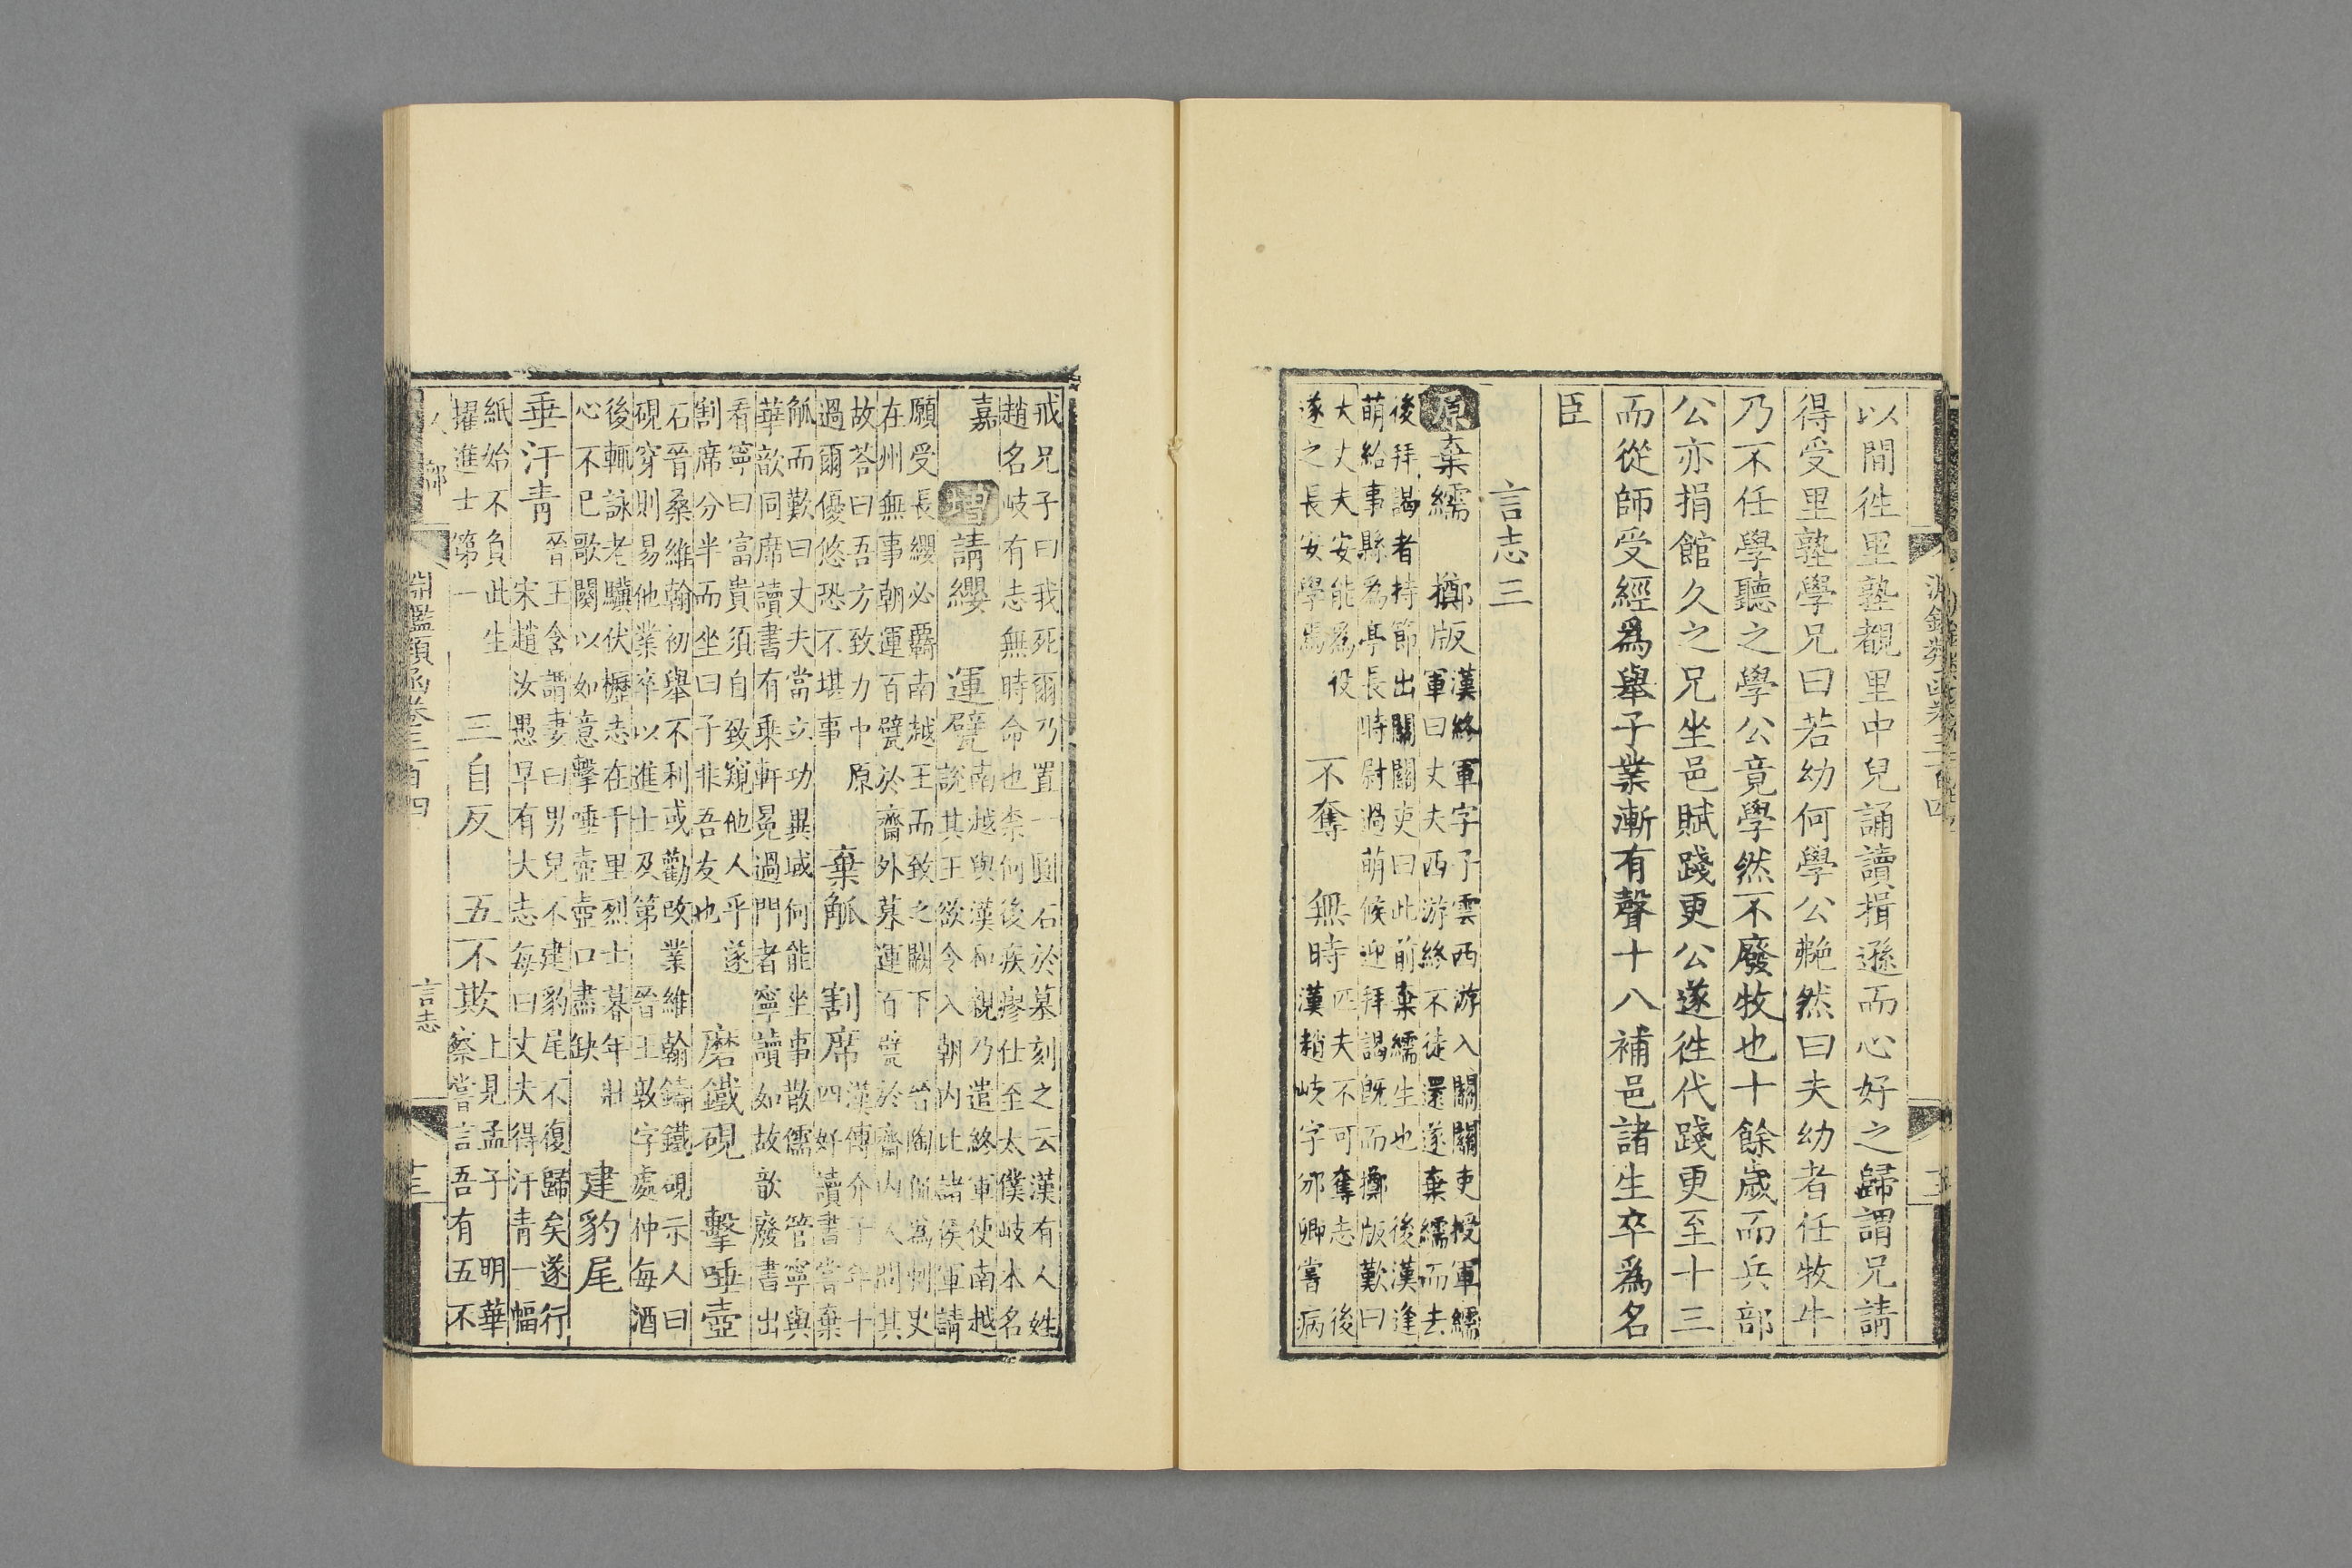 以間徃里塾覩里中兒誦讀揖遜而心好之歸謂兄請
得受里塾學兄曰若幼何學公艴然曰夫幼者任牧牛
乃不任學聽之學公竟學然不廢牧也十餘歲而兵部
公亦捐館久之兄坐邑賦踐更公遂徃代踐更至十三
而從師受經爲舉子業漸有聲十八補邑諸生卒爲名
臣
言志三
原棄繻 擲版
漢終軍字子雲西游入關關吏授軍繻
軍曰丈夫西游終不徒還遂棄繻而去
後拜謁者持節出關關吏曰此前棄繻生也 後漢逢
萌給事縣爲亭長時尉過萌候迎拜謁旣而擲版歎曰
大丈夫安能爲役
遂之長安學焉
不奪
匹夫不可奪志
無時
後
漢趙岐字邠卿嘗病
戒兄子曰我死爾乃置一圓石於墓刻之云漢有人姓
趙名岐有志無時命也柰何後疾瘳仕至太僕岐本名
嘉
增請纓
南越與漢和親乃遣終軍使南越
說其王欲令入朝内比諸侯軍請
願受長纓必覊南越王而致之闕下
運甓
晉陶侃爲刺史
在州無事朝運百甓於齋外莫運百甓於齋内人問其
故荅曰吾方致力中原
過爾優悠恐不堪事
棄觚
漢傅介子年十
四好讀書嘗棄
觚而歎曰丈夫當立功異域何能坐事散儒
割席
管寧與
華歆同席讀書有乗軒冕過門者寧讀如故歆廢書出
看寧曰富貴須自致窺他人乎遂
割席分半而坐曰子非吾友也
磨鐵硯
石晉桑維翰初舉不利或勸攺業維翰鑄鐵硯示人曰
硯穿則易他業卒以進士及第
擊唾壺
晉王敦字處仲每酒
後輒詠老驥伏櫪志在千里烈士暮年壯
心不已歌闋以如意擊唾壺壺口盡缺
建豹尾
晉王含謂妻曰男兒不建豹尾不復歸矣遂行
垂汗青
宋趙汝愚早有大志每曰丈夫得汗青一幅
紙始不負此生
三自反
上見孟子
五不欺
明華
察嘗言吾有五不
擢進士第一
人部
淵鑑類函卷三百四
言志